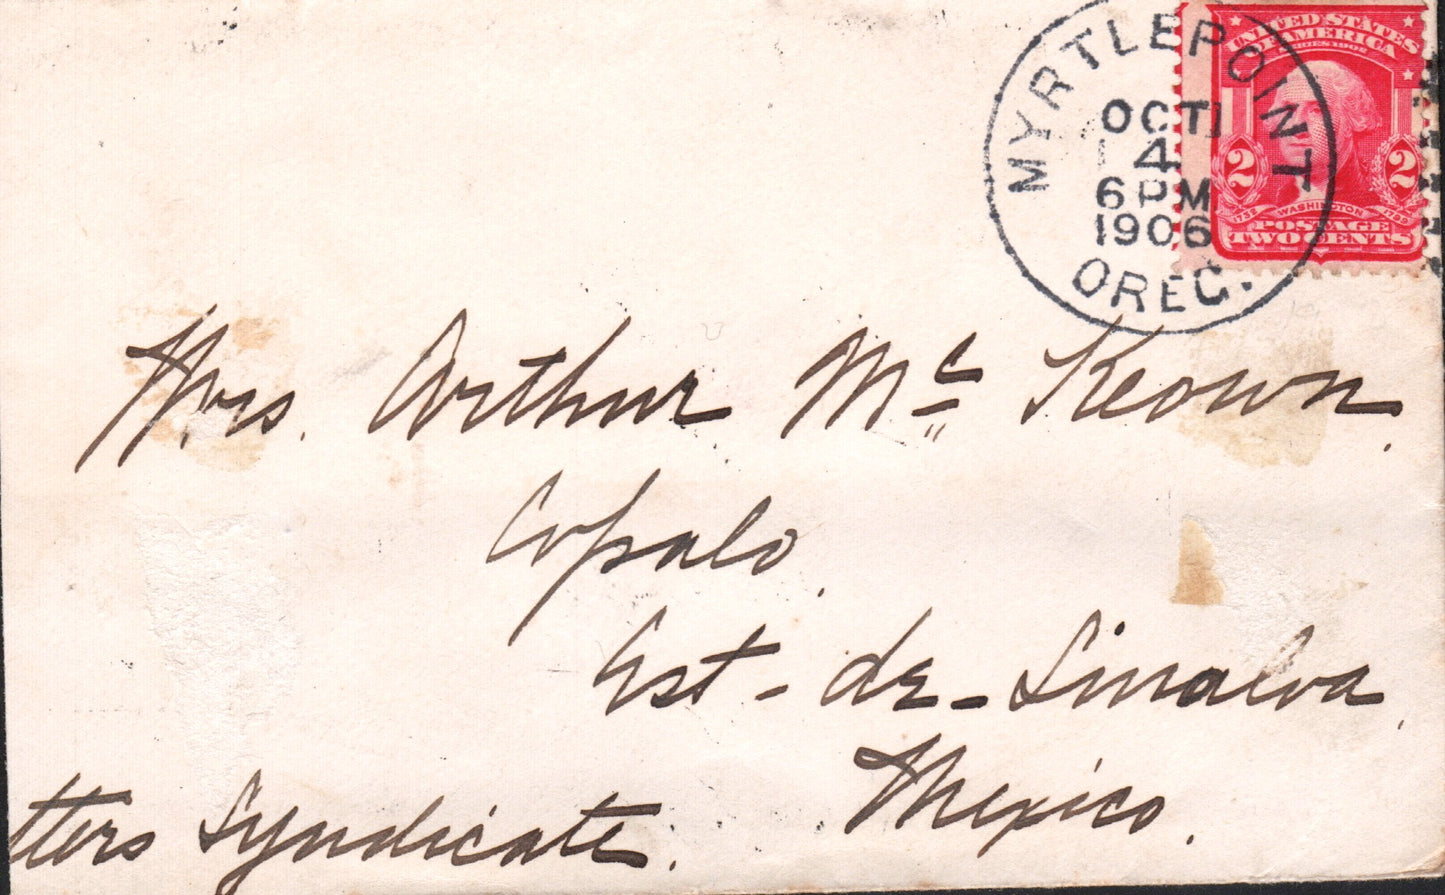 MYRTLE POINT
OCT
4
6 PM
1906
OREG.
UNITED STATES
OF AMERICA
SERIES 1902
2 2
1732 WASHINGTON 1799
POSTAGE
TWO CENTS
Mrs. Arthur Mc Keown.
Copalo.
Est - de - Sinaloa.
Mexico.
tters Syndicate.